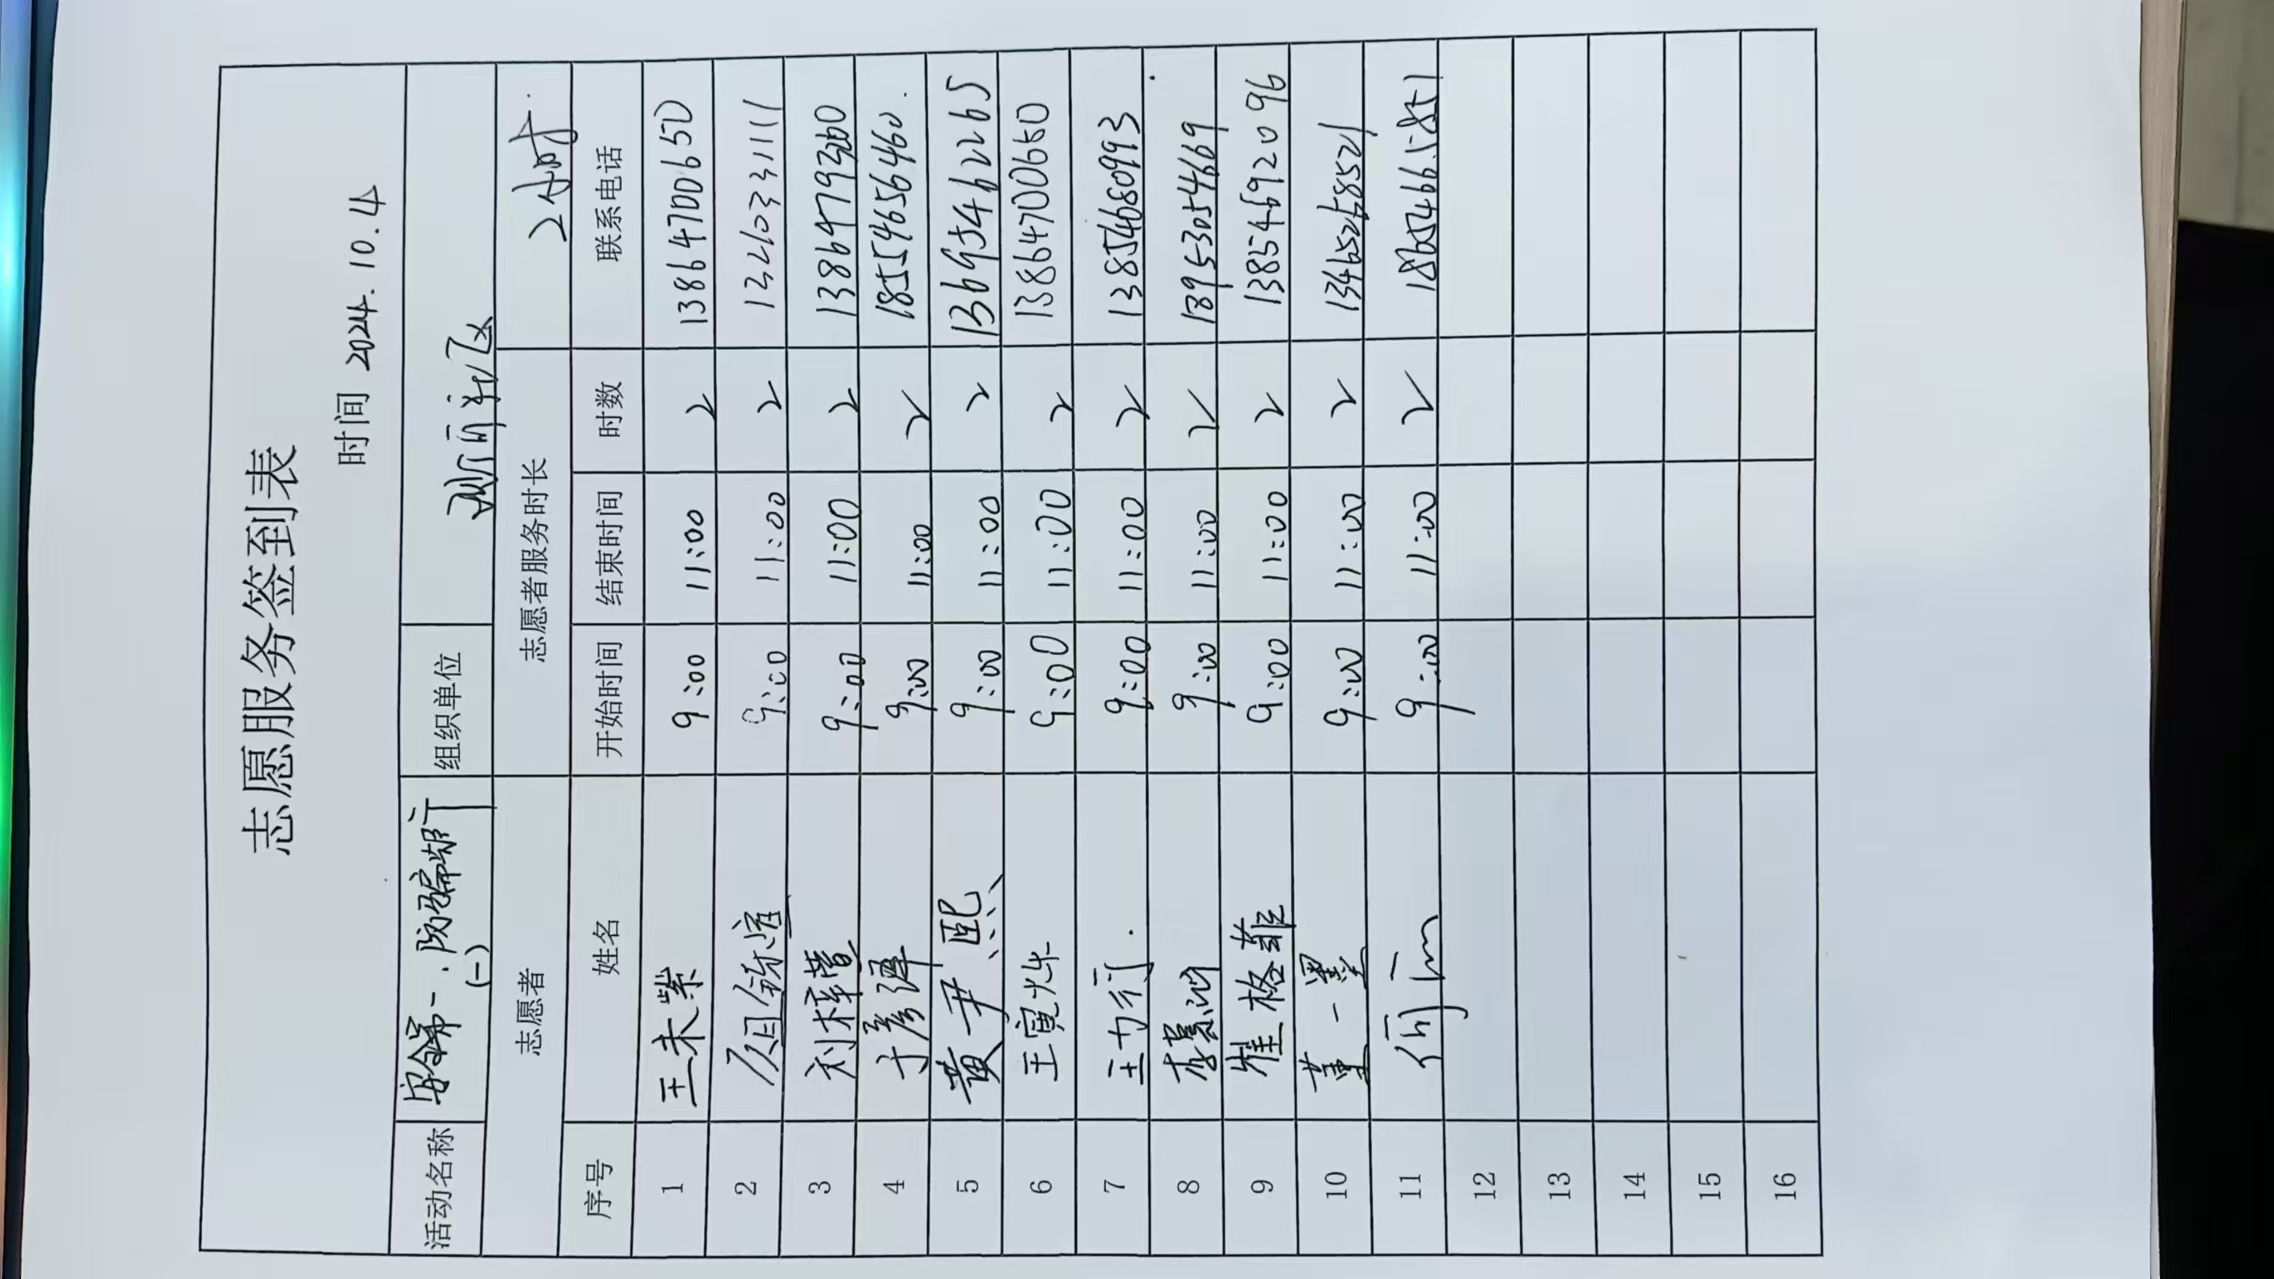 志愿服务签到表
时间 2024.10.4
活动名称 安全第一.防骗都行(一) 组织单位
志愿者 志愿者服务时长 2小时.
序号 姓名 开始时间 结束时间 时数 联系电话
1 王未紫 9:00 11:00 2 13864700650
2 9:00 11:00 2 13210331111
3 刘梓萱 9:00 11:00 2 13864793260
4 于彦泽 9:00 11:00 2 18554656460.
5 黄尹熙 9:00 11:00 2 13695462265
6 王寇烨 9:00 11:00 2 13864700650
7 王力行. 9:00 11:00 2 13854680993
8 9:00 11:00 2 18953054669
9 崔格菲 9:00 11:00 2 13854692096
10 董一墨 9:00 11:00 2 13465258521
11 9:00 11:00 2
12
13
14
15
16